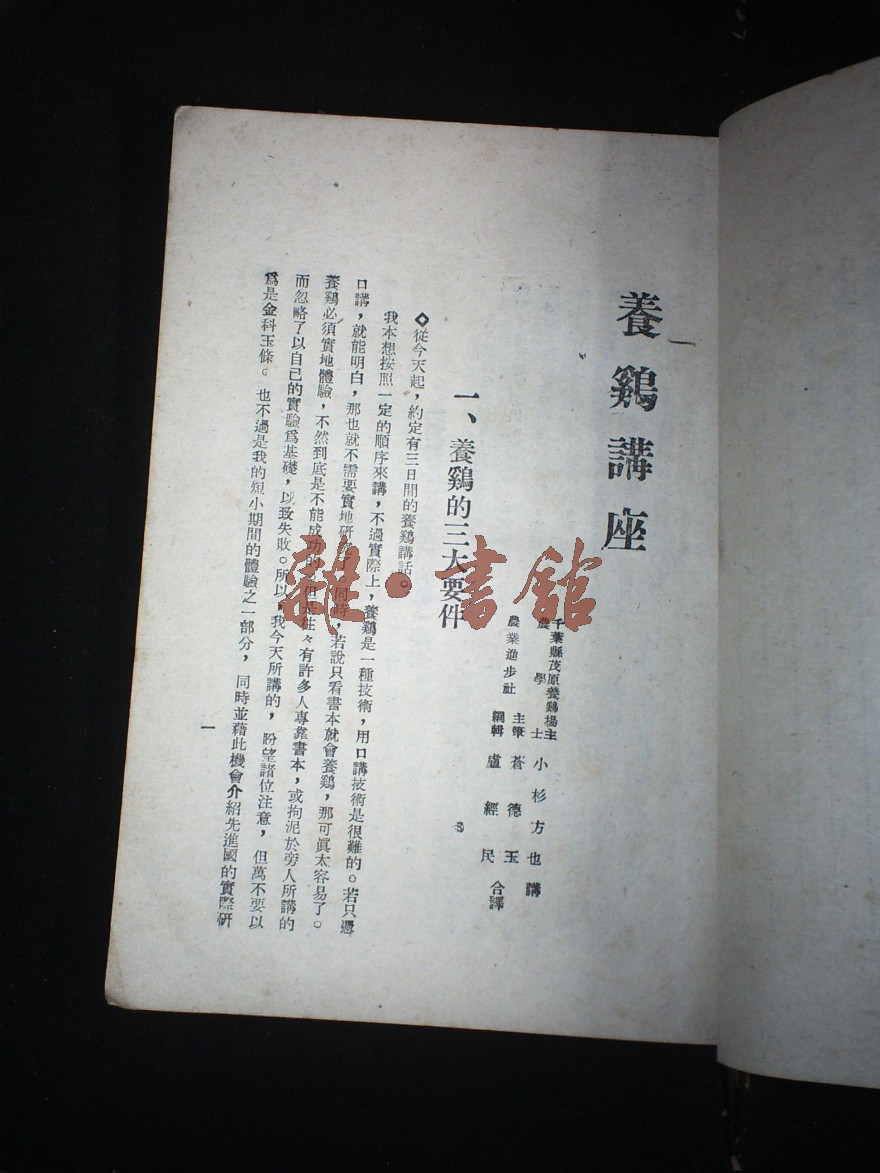 養鷄講座
千葉縣茂原養鷄場主
農學士 小杉方也講
農業進步社 主筆 蒼德玉
編輯 盧經民 合譯
一、養鷄的三大要件
◇從今天起，約定有三日間的養鷄講話。
我本想按照一定的順序來講，不過實際上，養鷄是一種技術，用口講技術是很難的。若只憑
口講，就能明白，那也就不需要實地研究了，同時，若說只看書本就會養鷄，那可眞太容易了。
養鷄必須實地體驗，不然到底是不能成功的，但是往々有許多人專靠書本，或拘泥於旁人所講的
而忽略了以自己的實驗爲基礎，以致失敗。所以，我今天所講的，盼望諸位注意，但萬不要以
爲是金科玉條。也不過是我的短小期間的體驗之一部分，同時並藉此機會介紹先進國的實際研
一
雜·書館